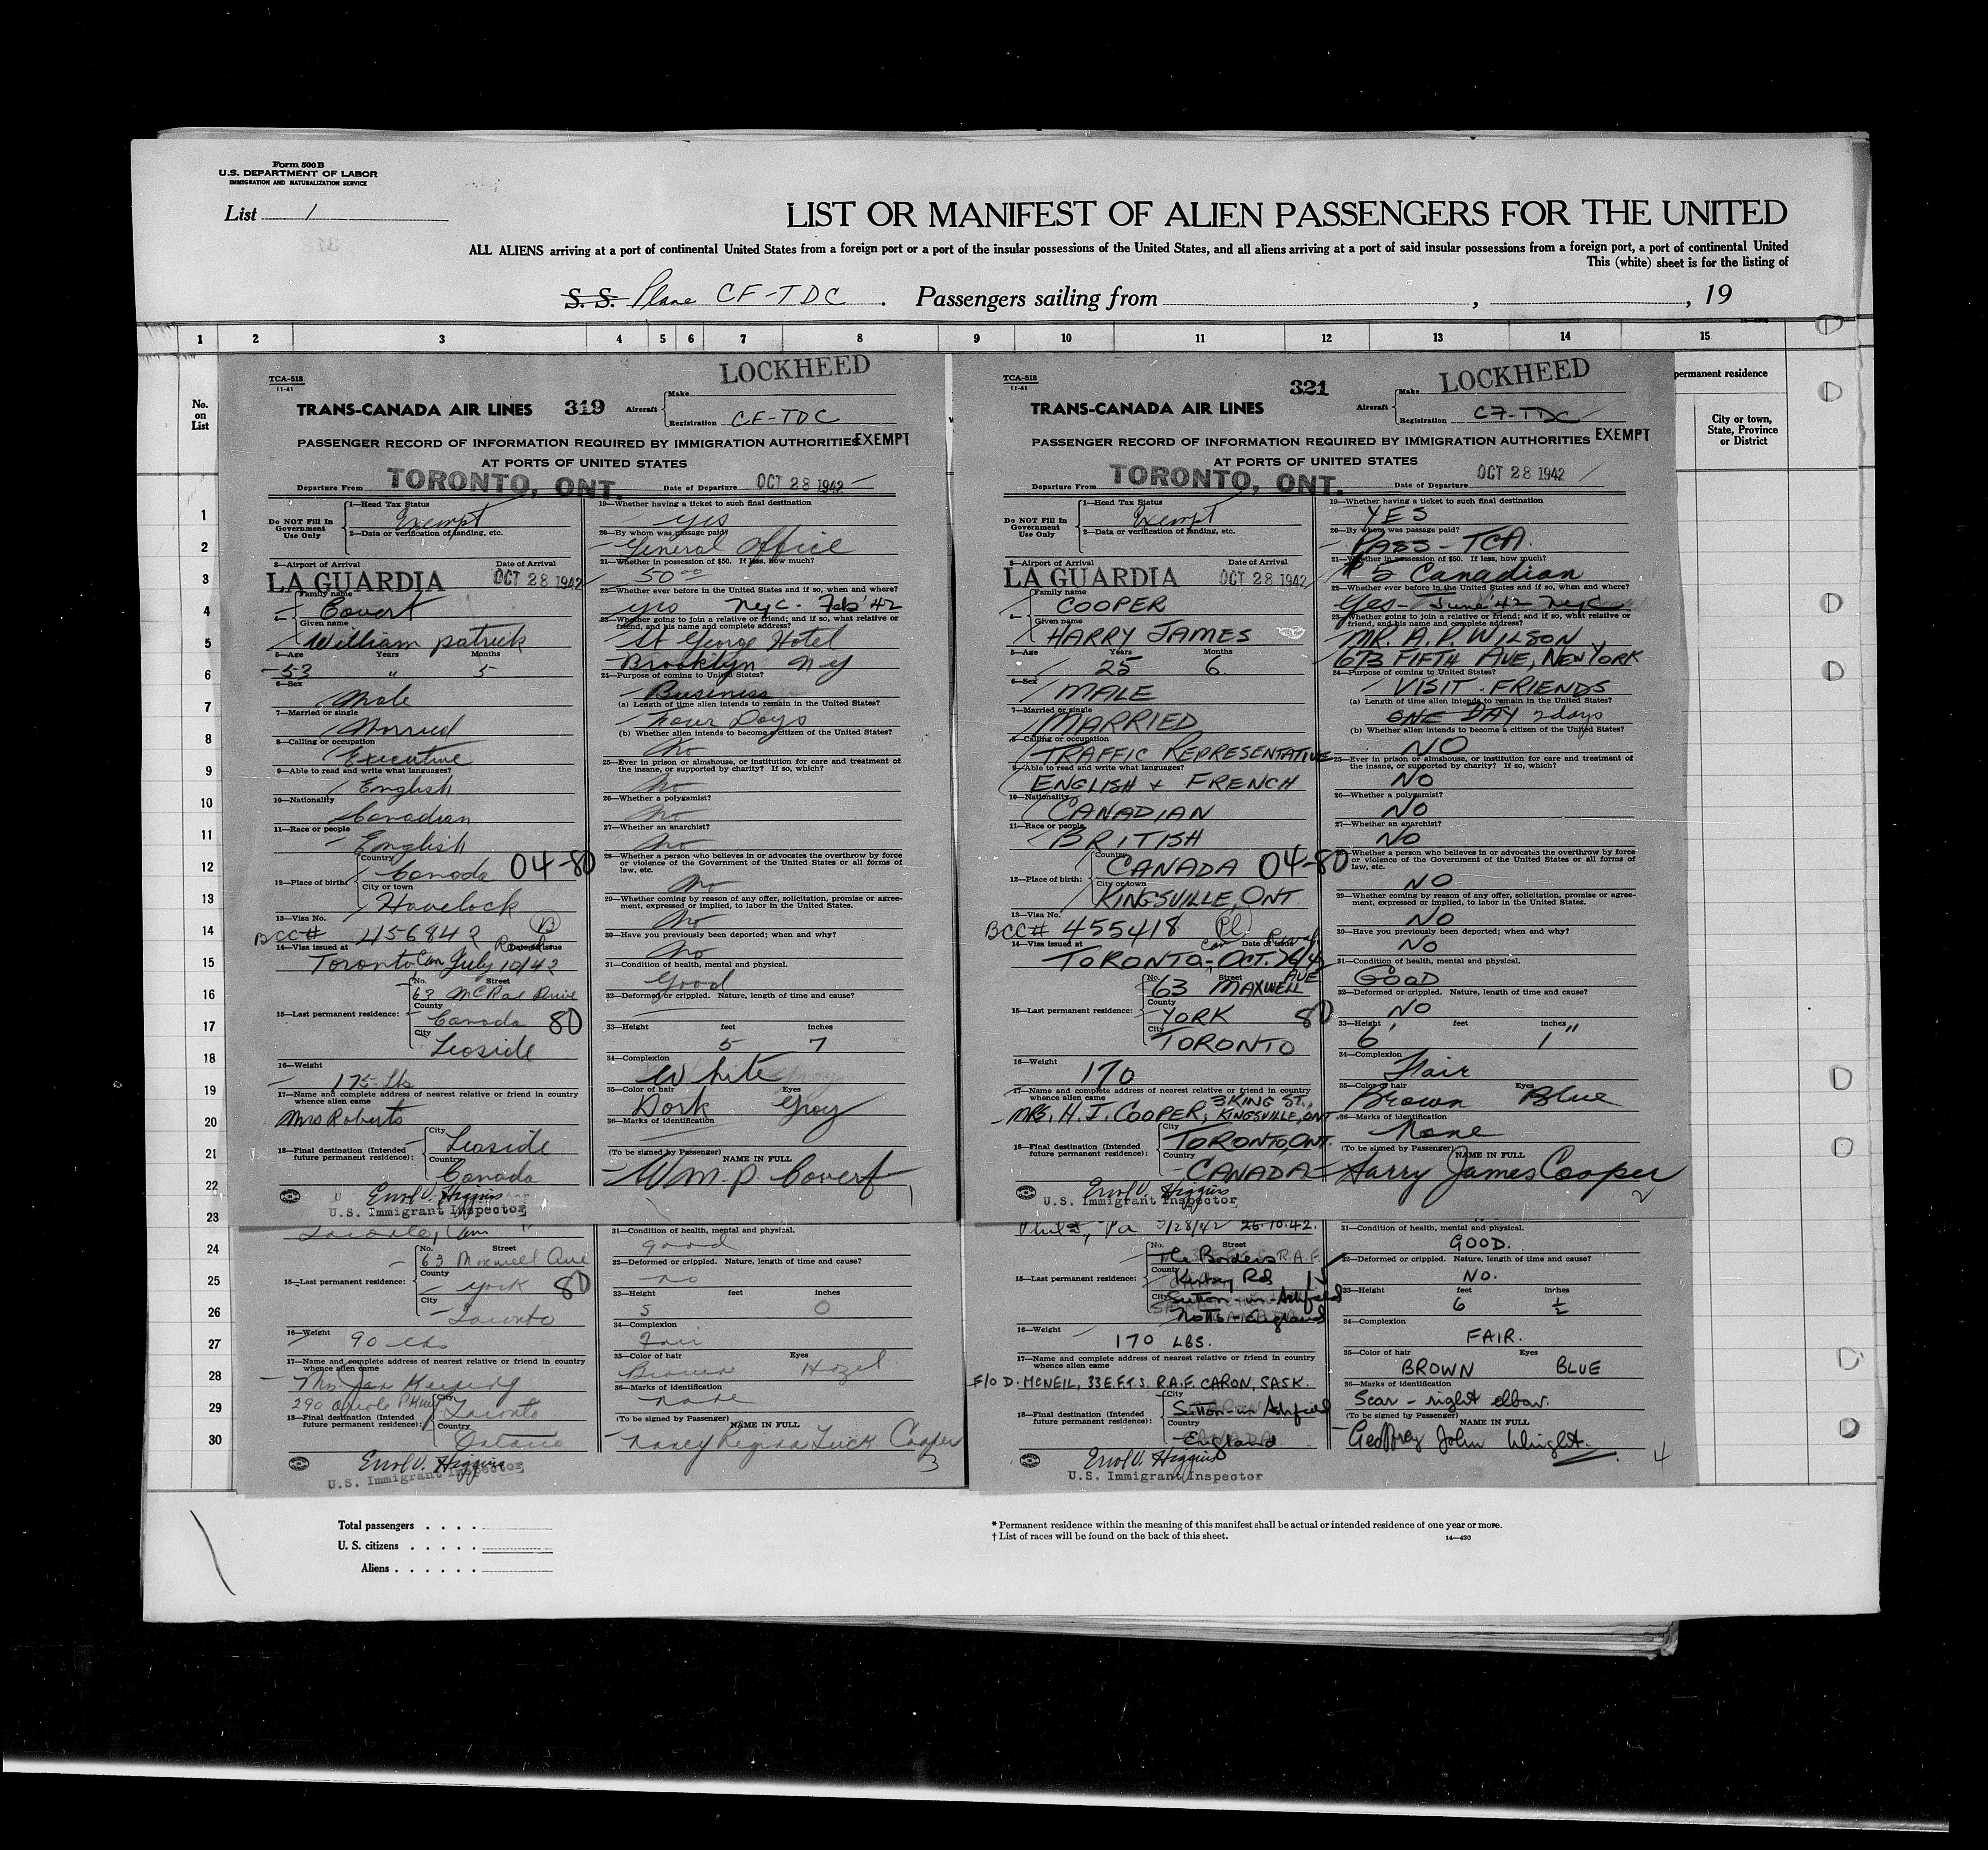 Form 500B
U.S. DEPARTMENT OF LABOR
IMMIGRATION AND NATURALIZATION SERVICE
List 1
LIST OR MANIFEST OF ALIEN PASSENGERS FOR THE UNITED
ALL ALIENS arriving at a port of continental United States from a foreign port or a port of the insular possessions of the United States, and all aliens arriving at a port of said insular possessions from a foreign port, a port of continental United
This (white) sheet is for the listing of
S. S. Plane CF-TDC . Passengers sailing from , , 19
1 2 3 4 5 6 7 8 9 10 11 12 13 14 15
No. on List
permanent residence
City or town, State, Province or District
1
2
3
4
5
6
7
8
9
10
11
12
13
14
15
16
17
18
19
20
21
22
23
24
25
26
27
28
29
30
TCA-518
11-41
LOCKHEED
TRANS-CANADA AIR LINES 319 Aircraft Make
Registration CF-TDC
PASSENGER RECORD OF INFORMATION REQUIRED BY IMMIGRATION AUTHORITIES EXEMPT
AT PORTS OF UNITED STATES
Departure From TORONTO, ONT. Date of Departure OCT 28 1942
Do NOT Fill In Government Use Only
1—Head Tax Status
Exempt
2—Data or verification of landing, etc.
3—Airport of Arrival Date of Arrival
LA GUARDIA OCT 28 1942
4— Family name
Covert
Given name
William Patrick
5—Age Years Months
53 " 5
6—Sex
Male
7—Married or single
Married
8—Calling or occupation
Executive
9—Able to read and write what languages?
English
10—Nationality
Canadian
11—Race or people
English
12—Place of birth: Country
Canada 04-80
City or town
Havelock
13—Visa No.
BCC# 456842 B
14—Visa issued at Date of issue
Toronto Can July 10/42
15—Last permanent residence: No. Street
63 McRae Drive
County
Canada 80
City
Leaside
16—Weight
175 lbs
17—Name and complete address of nearest relative or friend in country whence alien came
Mrs Roberts
18—Final destination (Intended future permanent residence): City
Leaside
Country
Canada
Errol V. Higgins
U.S. Immigrant Inspector
19—Whether having a ticket to such final destination
yes
20—By whom was passage paid?
General Office
21—Whether in possession of $50. If less, how much?
50 00
22—Whether ever before in the United States and if so, when and where?
yes NYC - Feb '42
23—Whether going to join a relative or friend; and if so, what relative or friend, and his name and complete address?
St George Hotel
Brooklyn NY
24—Purpose of coming to United States?
Business
(a) Length of time alien intends to remain in the United States?
Four Days
(b) Whether alien intends to become a citizen of the United States?
No
25—Ever in prison or almshouse, or institution for care and treatment of the insane, or supported by charity? If so, which?
No
26—Whether a polygamist?
No
27—Whether an anarchist?
No
28—Whether a person who believes in or advocates the overthrow by force or violence of the Government of the United States or all forms of law, etc.
No
29—Whether coming by reason of any offer, solicitation, promise or agreement, expressed or implied, to labor in the United States.
No
30—Have you previously been deported; when and why?
No
31—Condition of health, mental and physical.
Good
32—Deformed or crippled. Nature, length of time and cause?
33—Height feet inches
5 7
34—Complexion
White
35—Color of hair Eyes
Dark Gray
36—Marks of identification
(To be signed by Passenger) NAME IN FULL
Wm. P. Covert
1
TCA-518
11-41
LOCKHEED
TRANS-CANADA AIR LINES 321 Aircraft Make
Registration CF-TDC
PASSENGER RECORD OF INFORMATION REQUIRED BY IMMIGRATION AUTHORITIES EXEMPT
AT PORTS OF UNITED STATES
Departure From TORONTO, ONT. Date of Departure OCT 28 1942
Do NOT Fill In Government Use Only
1—Head Tax Status
Exempt
2—Data or verification of landing, etc.
3—Airport of Arrival Date of Arrival
LA GUARDIA OCT 28 1942
4— Family name
COOPER
Given name
HARRY JAMES
5—Age Years Months
25 6
6—Sex
MALE
7—Married or single
MARRIED
8—Calling or occupation
TRAFFIC REPRESENTATIVE
9—Able to read and write what languages?
ENGLISH + FRENCH
10—Nationality
CANADIAN
11—Race or people
BRITISH
12—Place of birth: Country
CANADA 04-80
City or town
KINGSVILLE, ONT
13—Visa No.
BCC# 455418 Pl
14—Visa issued at Date of issue
TORONTO - OCT.
15—Last permanent residence: No. Street
63 MAXWELL AVE
County
YORK 80
City
TORONTO
16—Weight
170
17—Name and complete address of nearest relative or friend in country whence alien came
MRS. H. J. COOPER, 3 KING ST., KINGSVILLE, ONT
18—Final destination (Intended future permanent residence): City
TORONTO, ONT.
Country
CANADA
Errol V. Higgins
U.S. Immigrant Inspector
19—Whether having a ticket to such final destination
YES
20—By whom was passage paid?
PASS - TCA.
21—Whether in possession of $50. If less, how much?
$5 Canadian
22—Whether ever before in the United States and if so, when and where?
Yes - June '42 NYC
23—Whether going to join a relative or friend; and if so, what relative or friend, and his name and complete address?
MR. A. P. WILSON
673 FIFTH AVE, NEW YORK
24—Purpose of coming to United States?
VISIT - FRIENDS
(a) Length of time alien intends to remain in the United States?
ONE DAY 2 days
(b) Whether alien intends to become a citizen of the United States?
NO
25—Ever in prison or almshouse, or institution for care and treatment of the insane, or supported by charity? If so, which?
NO
26—Whether a polygamist?
NO
27—Whether an anarchist?
NO
28—Whether a person who believes in or advocates the overthrow by force or violence of the Government of the United States or all forms of law, etc.
NO
29—Whether coming by reason of any offer, solicitation, promise or agreement, expressed or implied, to labor in the United States.
NO
30—Have you previously been deported; when and why?
NO
31—Condition of health, mental and physical.
GOOD
32—Deformed or crippled. Nature, length of time and cause?
NO
33—Height feet inches
6' 1"
34—Complexion
Fair
35—Color of hair Eyes
Brown Blue
36—Marks of identification
None
(To be signed by Passenger) NAME IN FULL
Harry James Cooper
2
15—Last permanent residence: No. Street
63 Maxwell Ave
County
York 80
City
Toronto
16—Weight
90 lbs
17—Name and complete address of nearest relative or friend in country whence alien came
290 Oriole Pkwy
18—Final destination (Intended future permanent residence): City
Toronto
Country
Ontario
Errol V. Higgins
U.S. Immigrant Inspector
31—Condition of health, mental and physical.
good
32—Deformed or crippled. Nature, length of time and cause?
no
33—Height feet inches
5 0
34—Complexion
Fair
35—Color of hair Eyes
Brown Hazel
36—Marks of identification
none
(To be signed by Passenger) NAME IN FULL
Nancy Regina Luck Cooper
3
Phila, Pa 26.10.42.
15—Last permanent residence: No. Street
The Borders
County
Kirby Rd 15
City
Sutton-in-Ashfield
Notts - England
16—Weight
170 LBS.
17—Name and complete address of nearest relative or friend in country whence alien came
F/O D. MCNEIL, 33 E.F.T.S. R.A.F. CARON, SASK.
18—Final destination (Intended future permanent residence): City
Sutton-in-Ashfield
Country
England
Errol V. Higgins
U.S. Immigrant Inspector
31—Condition of health, mental and physical.
GOOD.
32—Deformed or crippled. Nature, length of time and cause?
NO.
33—Height feet inches
6 ½
34—Complexion
FAIR.
35—Color of hair Eyes
BROWN BLUE
36—Marks of identification
Scar - right elbow.
(To be signed by Passenger) NAME IN FULL
Geoffrey John Wright.
4
Total passengers . . . .
U. S. citizens . . . . .
Aliens . . . . . .
* Permanent residence within the meaning of this manifest shall be actual or intended residence of one year or more.
† List of races will be found on the back of this sheet.
14—430